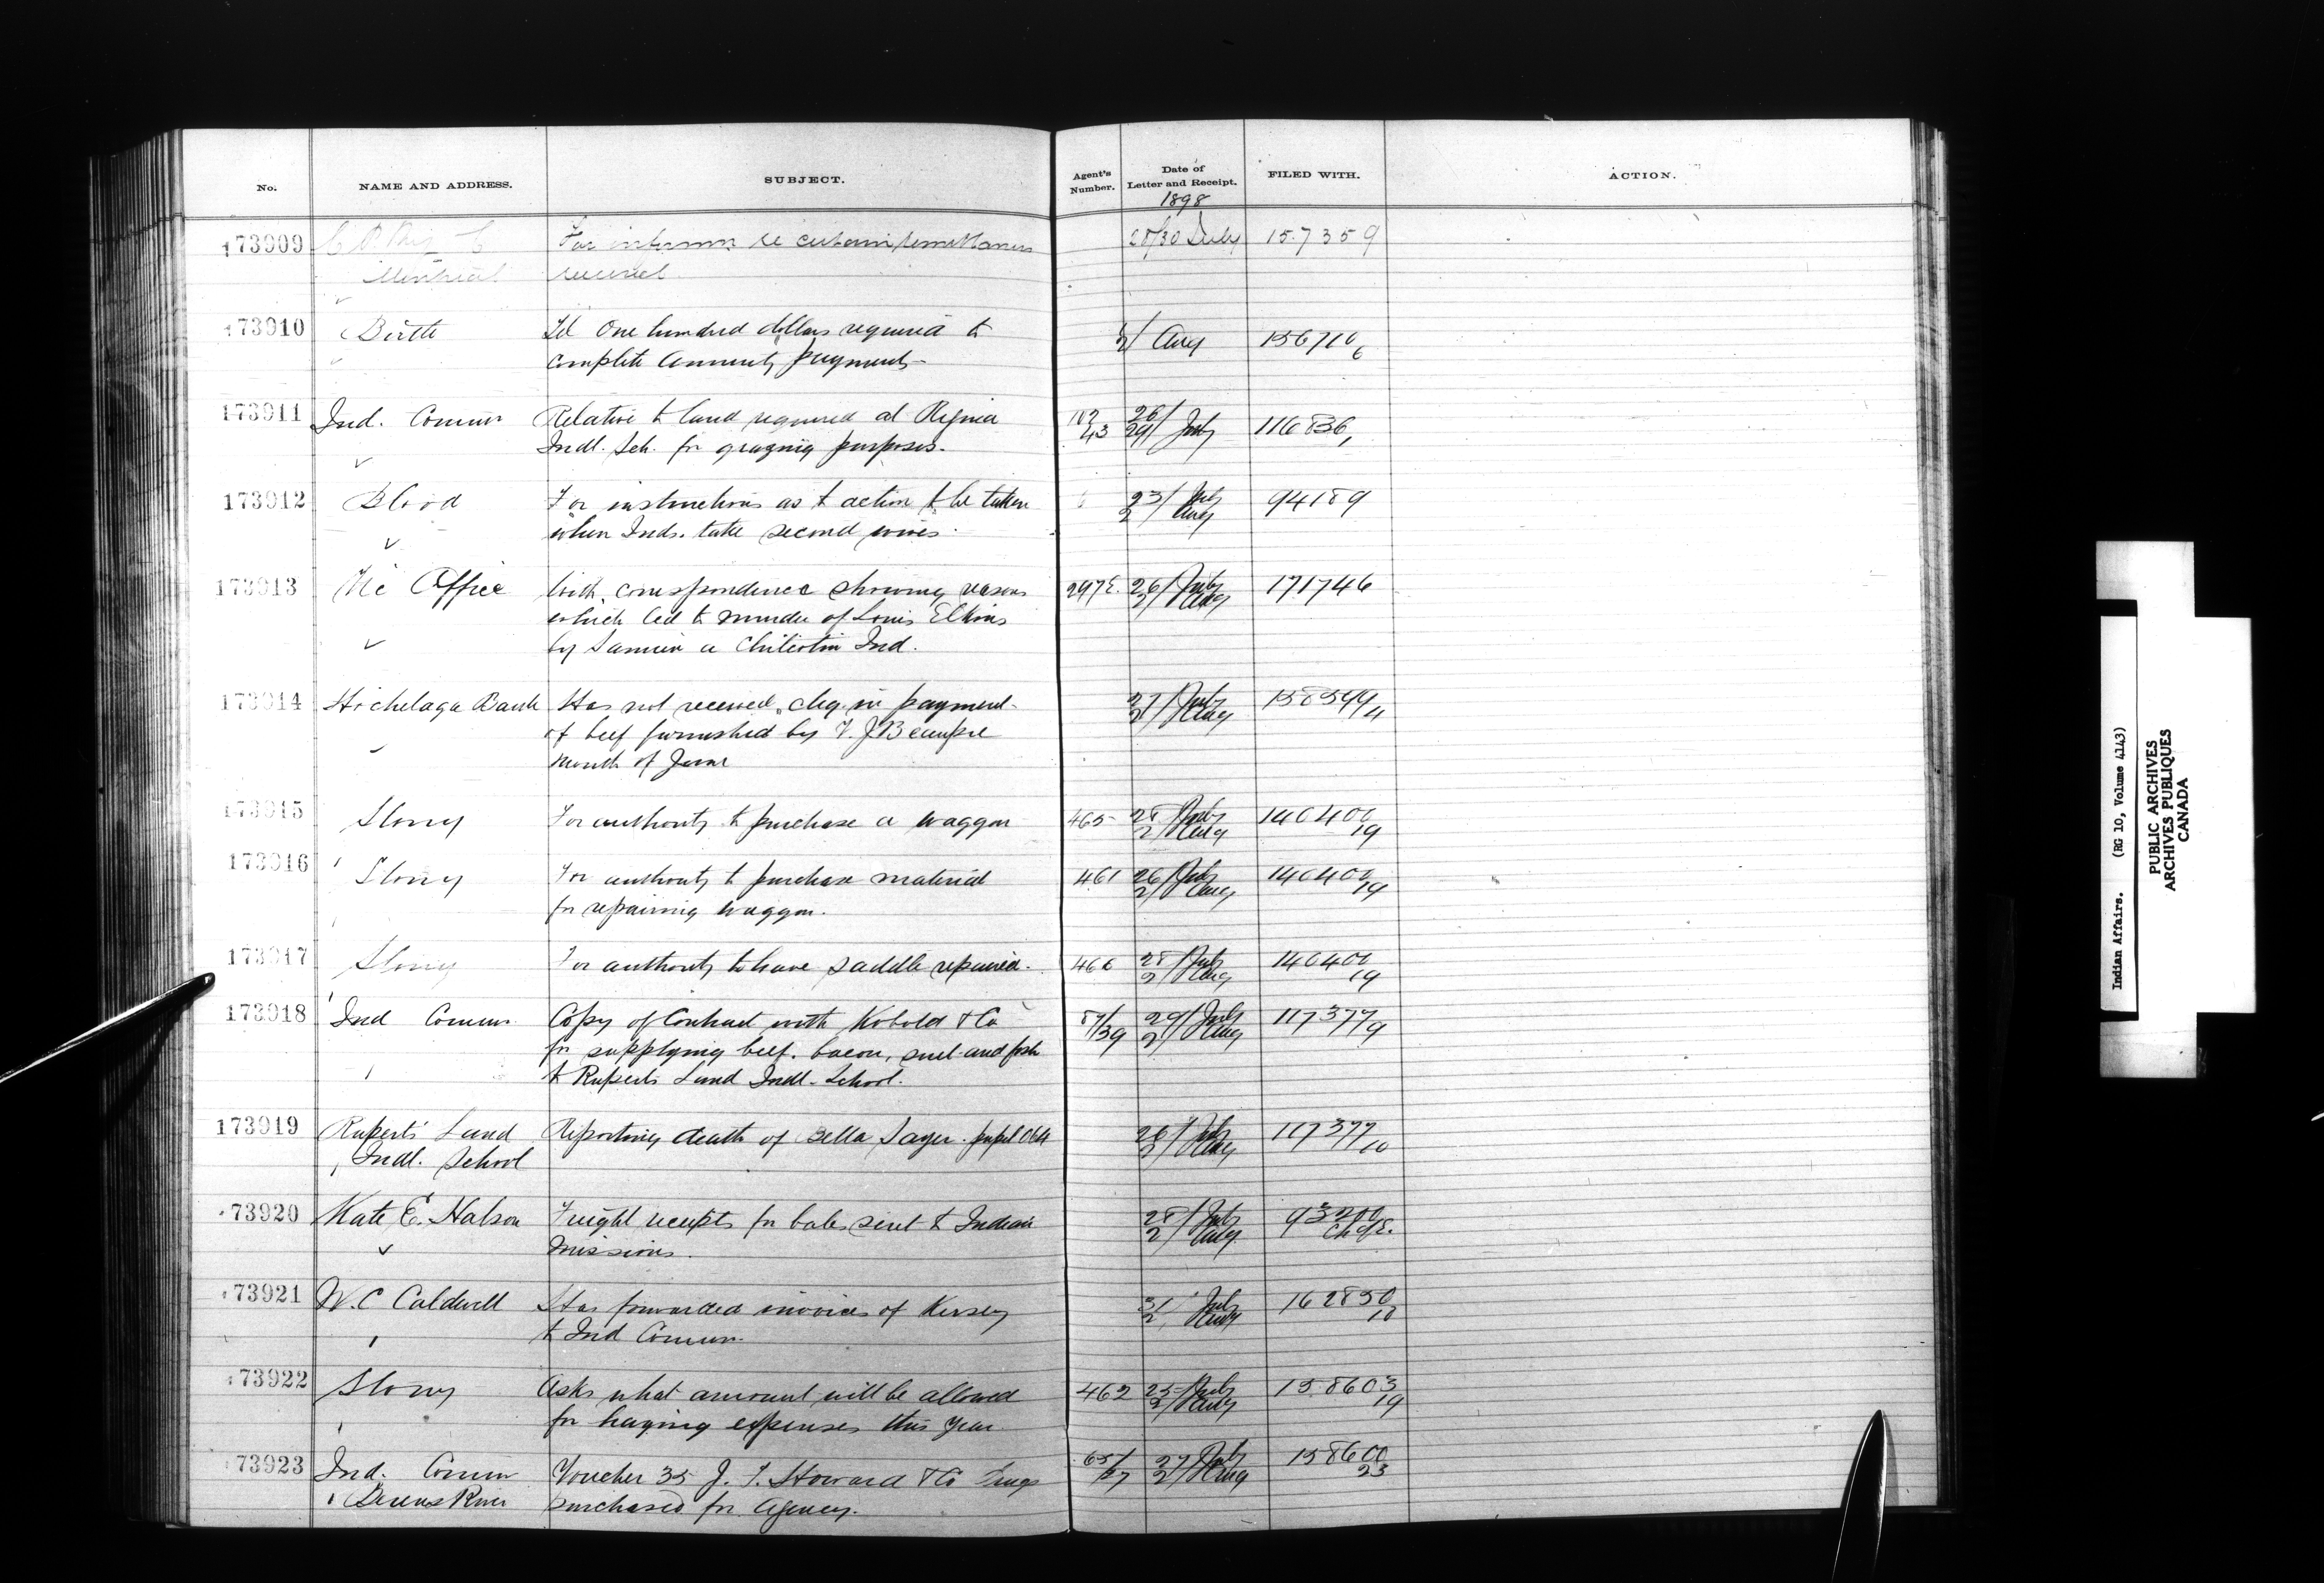 No. NAME AND ADDRESS. SUBJECT. Agent's Number. Date of Letter and Receipt. FILED WITH. ACTION.
1898
173909 C.P. Ry Co For informn re certain remittances 28/30 July 157359
Montreal received.
173910 Birtle Tel One hundred dollars required to 2/ Aug 156710
complete annuity payments 6
173911 Ind. Commr Relative to land required at Regina 102/43 26/29 July 116836
Indl. Sch. for grazing purposes. 1
173912 Blood For instructions as to action to be taken 23/ July 94189
when Inds. take second wives. 2/ Aug
173913 Vic Office With correspondence showing reasons 297E. 26/ July 171746
which led to murder of Louis Elkins 2/ Aug
by Samien a Chilcotin Ind.
173914 Hochelaga Bank Has not received chq. in payment 27/ July
of beef furnished by V. J. Beaupre 2/ Aug 4
month of June
173915 Stony For authority to purchase a waggon 465 28/ July 140400
2/ Aug 19
173916 Stony For authority to purchase material 461 26/ July 140400
for repairing waggon. 2/ Aug 19
173917 Stony For authority to have saddle repaired. 466 28/ July 140400
2/ Aug 19
173918 Ind Commr Copy of Contract with Kobold & Co 87/39 29/ July 117377
for supplying beef, bacon, suet and fish 2/ Aug 9
to Ruperts Land Indl. School.
173919 Ruperts Land Reporting death of Bella Sayer. pupil 064 28/ July 117377
Indl. School 2/ Aug 10
173920 Kate E. Halson Freight receipts for bales sent to Indian 28/ July 93200
missions. 2/ Aug
173921 W. C Caldwell Has forwarded invoices of Kersey 31 July 162850
to Ind Commr. 2 Aug 10
173922 Stony Asks what amount will be allowed 462 25/ July 158603
for haying expenses this year 2/ Aug 19
173923 Ind. Commr Voucher 35 J. F. Howard & Co Drugs 27/ July 158600
Berens River purchased for Agency. 2/ Aug 23
Indian Affairs. (RG 10, Volume 4143)
PUBLIC ARCHIVES
ARCHIVES PUBLIQUES
CANADA